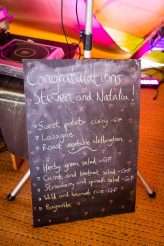 Congratulations
Steven and Natalia!
• Sweet potato curry -GF
• Lasagne
• Roast vegetable Wellington
• Herby green salad -GF
• Carrot and beetroot salad -GF
• Strawberry and spinach salad -GF
• Wild and basmati rice -GF
• Baguette